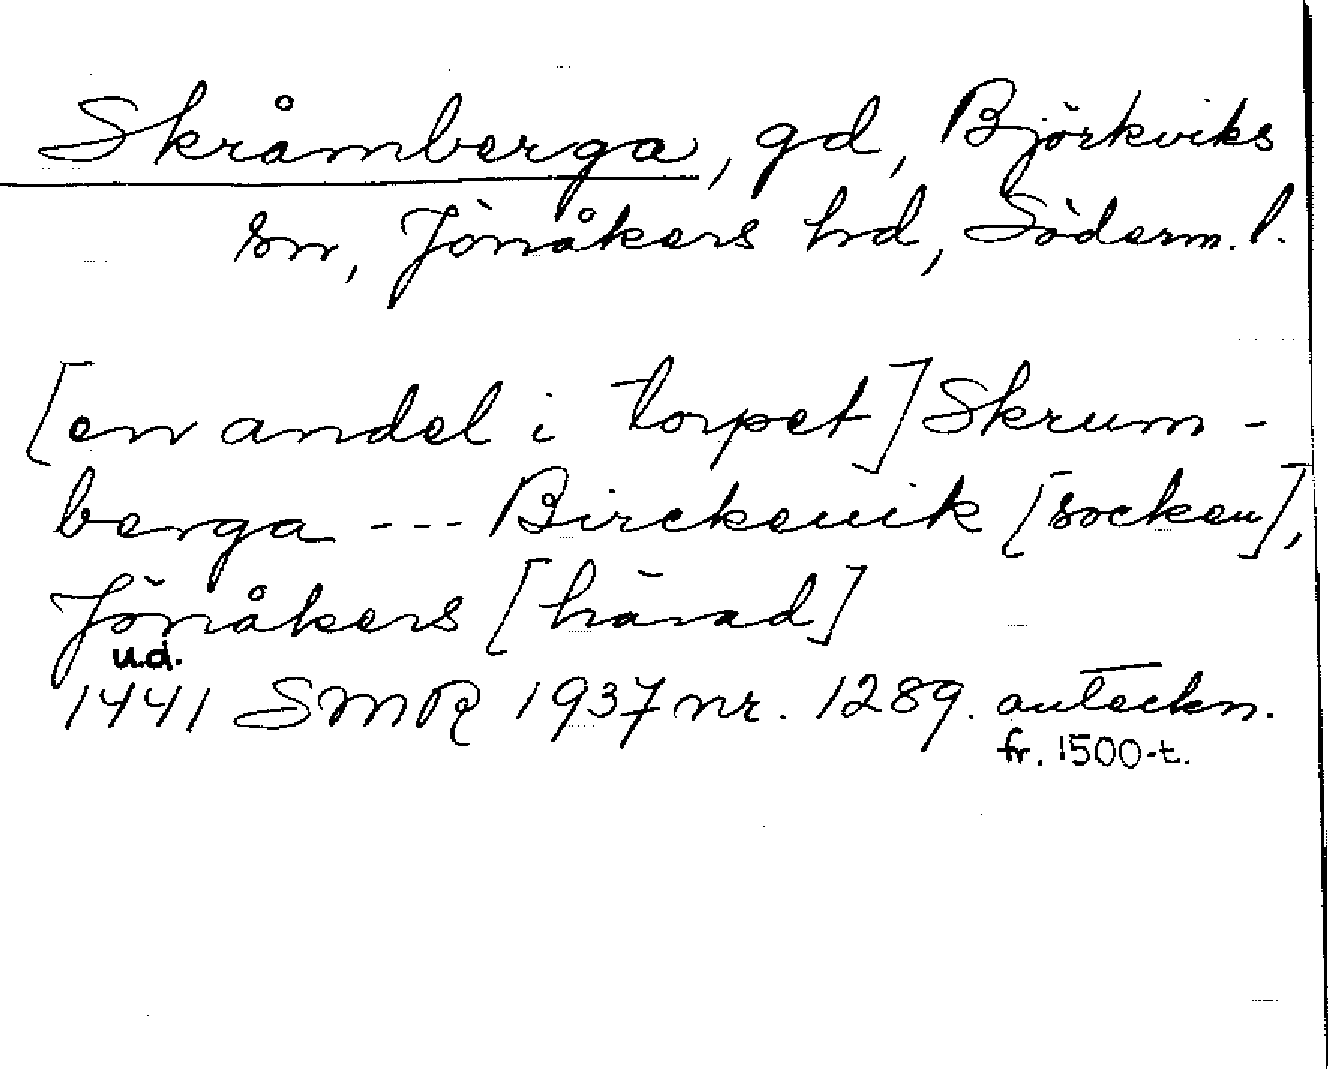 Skråmberga, gd, Björkviks
sn, Jönåkers hd, Söderm. l.
[en andel i torpet] Skrum-
berga --- Birckeuik [socken],
Jönåkers [härad]
u.d.
1441 SMR 1937 nr. 1289. anteckn.
fr. 1500-t.